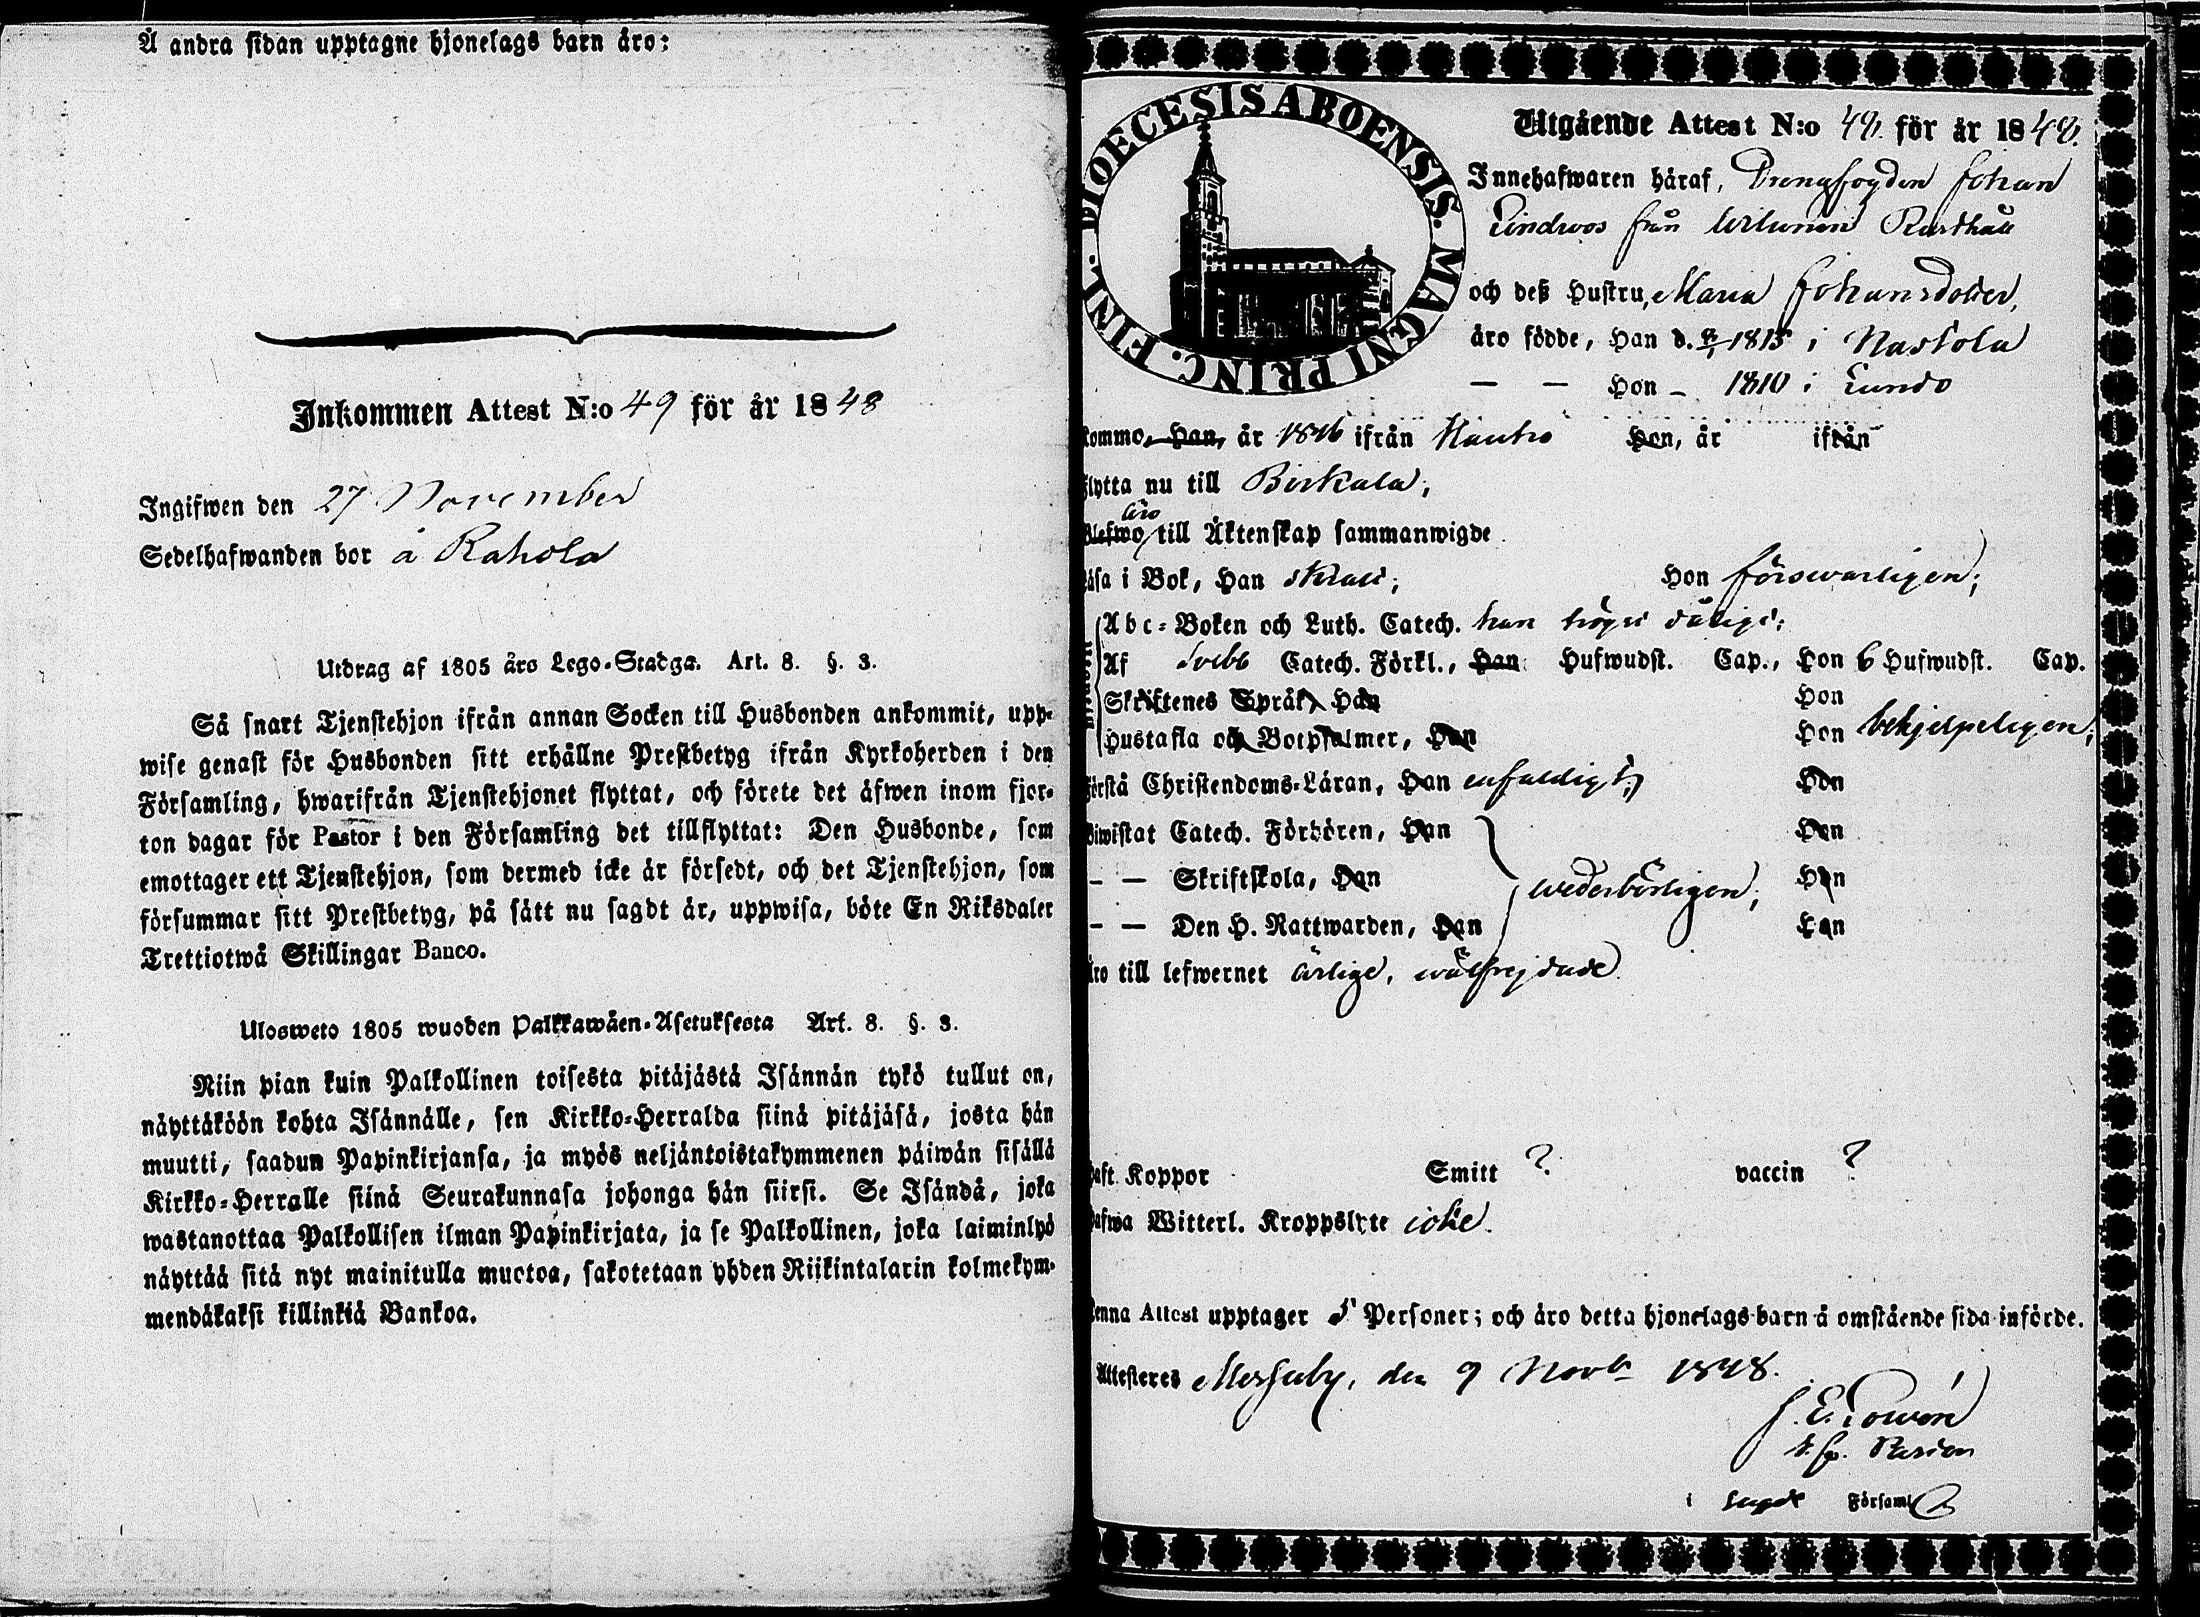 Å andra sidan upptagne hjonelags barn äro:
Inkommen Attest N:o 49 för år 1848
Ingifwen den 27 November
Sedelhafwanden bor å Rahola
Utdrag af 1805 års Lego-Stadga. Art. 8. §. 3.
Så snart Tjenstehjon ifrån annan Socken till Husbonden ankommit, upp-
wise genast för Husbonden sitt erhållne Prestbetyg ifrån Kyrkoherden i den
Församling, hwarifrån Tjenstehjonet flyttat, och förete det äfwen inom fjor-
ton dagar för Pastor i den Församling det tillflyttat: Den Husbonde, som
emottager ett Tjenstehjon, som dermed icke är försedt, och det Tjenstehjon, som
försummar sitt Prestbetyg, på sätt nu sagdt är, uppwisa, böte En Riksdaler
Trettiotwå Skillingar Banco.
Ulosweto 1805 wuoden Palkkawäen-Asetuksesta Art. 8. §. 3.
Niin pian kuin Palkollinen toisesta pitäjästä Isännän tykö tullut on,
näyttäköön kohta Isännälle, sen Kirkko-Herralda siinä pitäjäsä, josta hän
muutti, saadun Papinkirjansa, ja myös neljäntoistakymmenen päiwän sisällä
Kirkko-Herralle siinä Seurakunnasa johonga hän siirsi. Se Isändä, joka
wastanottaa Palkollisen ilman Papinkirjata, ja se Palkollinen, joka laiminlyö
näyttää sitä nyt mainitulla muotoa, sakotetaan yhden Riikintalarin kolmekym-
mendäkaksi killinkiä Bankoa.
DIOECESIS ABOENSIS. MAGNI PRINC. FINL.
Utgående Attest N:o 48. för år 1848.
Innehafwaren häraf, Drengfogden Johan
Lindroos från
och deß Hustru, Maria Johansdotter,
äro födde, Han d. 1815 i Nastola
— — Hon - 1810 i Lundo
kommo, Han, år 1846 ifrån Nautro Hon, år ifrån
flytta nu till Birkala;
äro
Blefwo till Äktenskap sammanwigde
Läsa i Bok, Han skralt; Hon förswarligen;
Abc-Boken och Luth. Catech. han högst dåligt;
Af Svebb Catech. Förkl., Han Hufwudst. Cap., Hon 6 Hufwudst. Cap.
Skriftenes Språk, Han Hon
Hustafla och Botpsalmer, Han Hon behjelpeligen;
Förstå Christendoms-Läran, Han enfaldigt; Hon
Biwistat Catech. Förhören, Han Hon
— — Skriftskola, Han wederbörligen; Hon
— — Den H. Nattwarden, Han Hon
Äro till lefwernet ärlige, wälfrejdade.
Haft Koppor Smitt ? vaccin ?
Hafwa Witterl. Kroppslyte icke.
Denna Attest upptager 5 Personer; och äro detta hjonelags barn å omstående sida införde.
Attesteres den 9 Novb 1848.
J. E.
i Församl